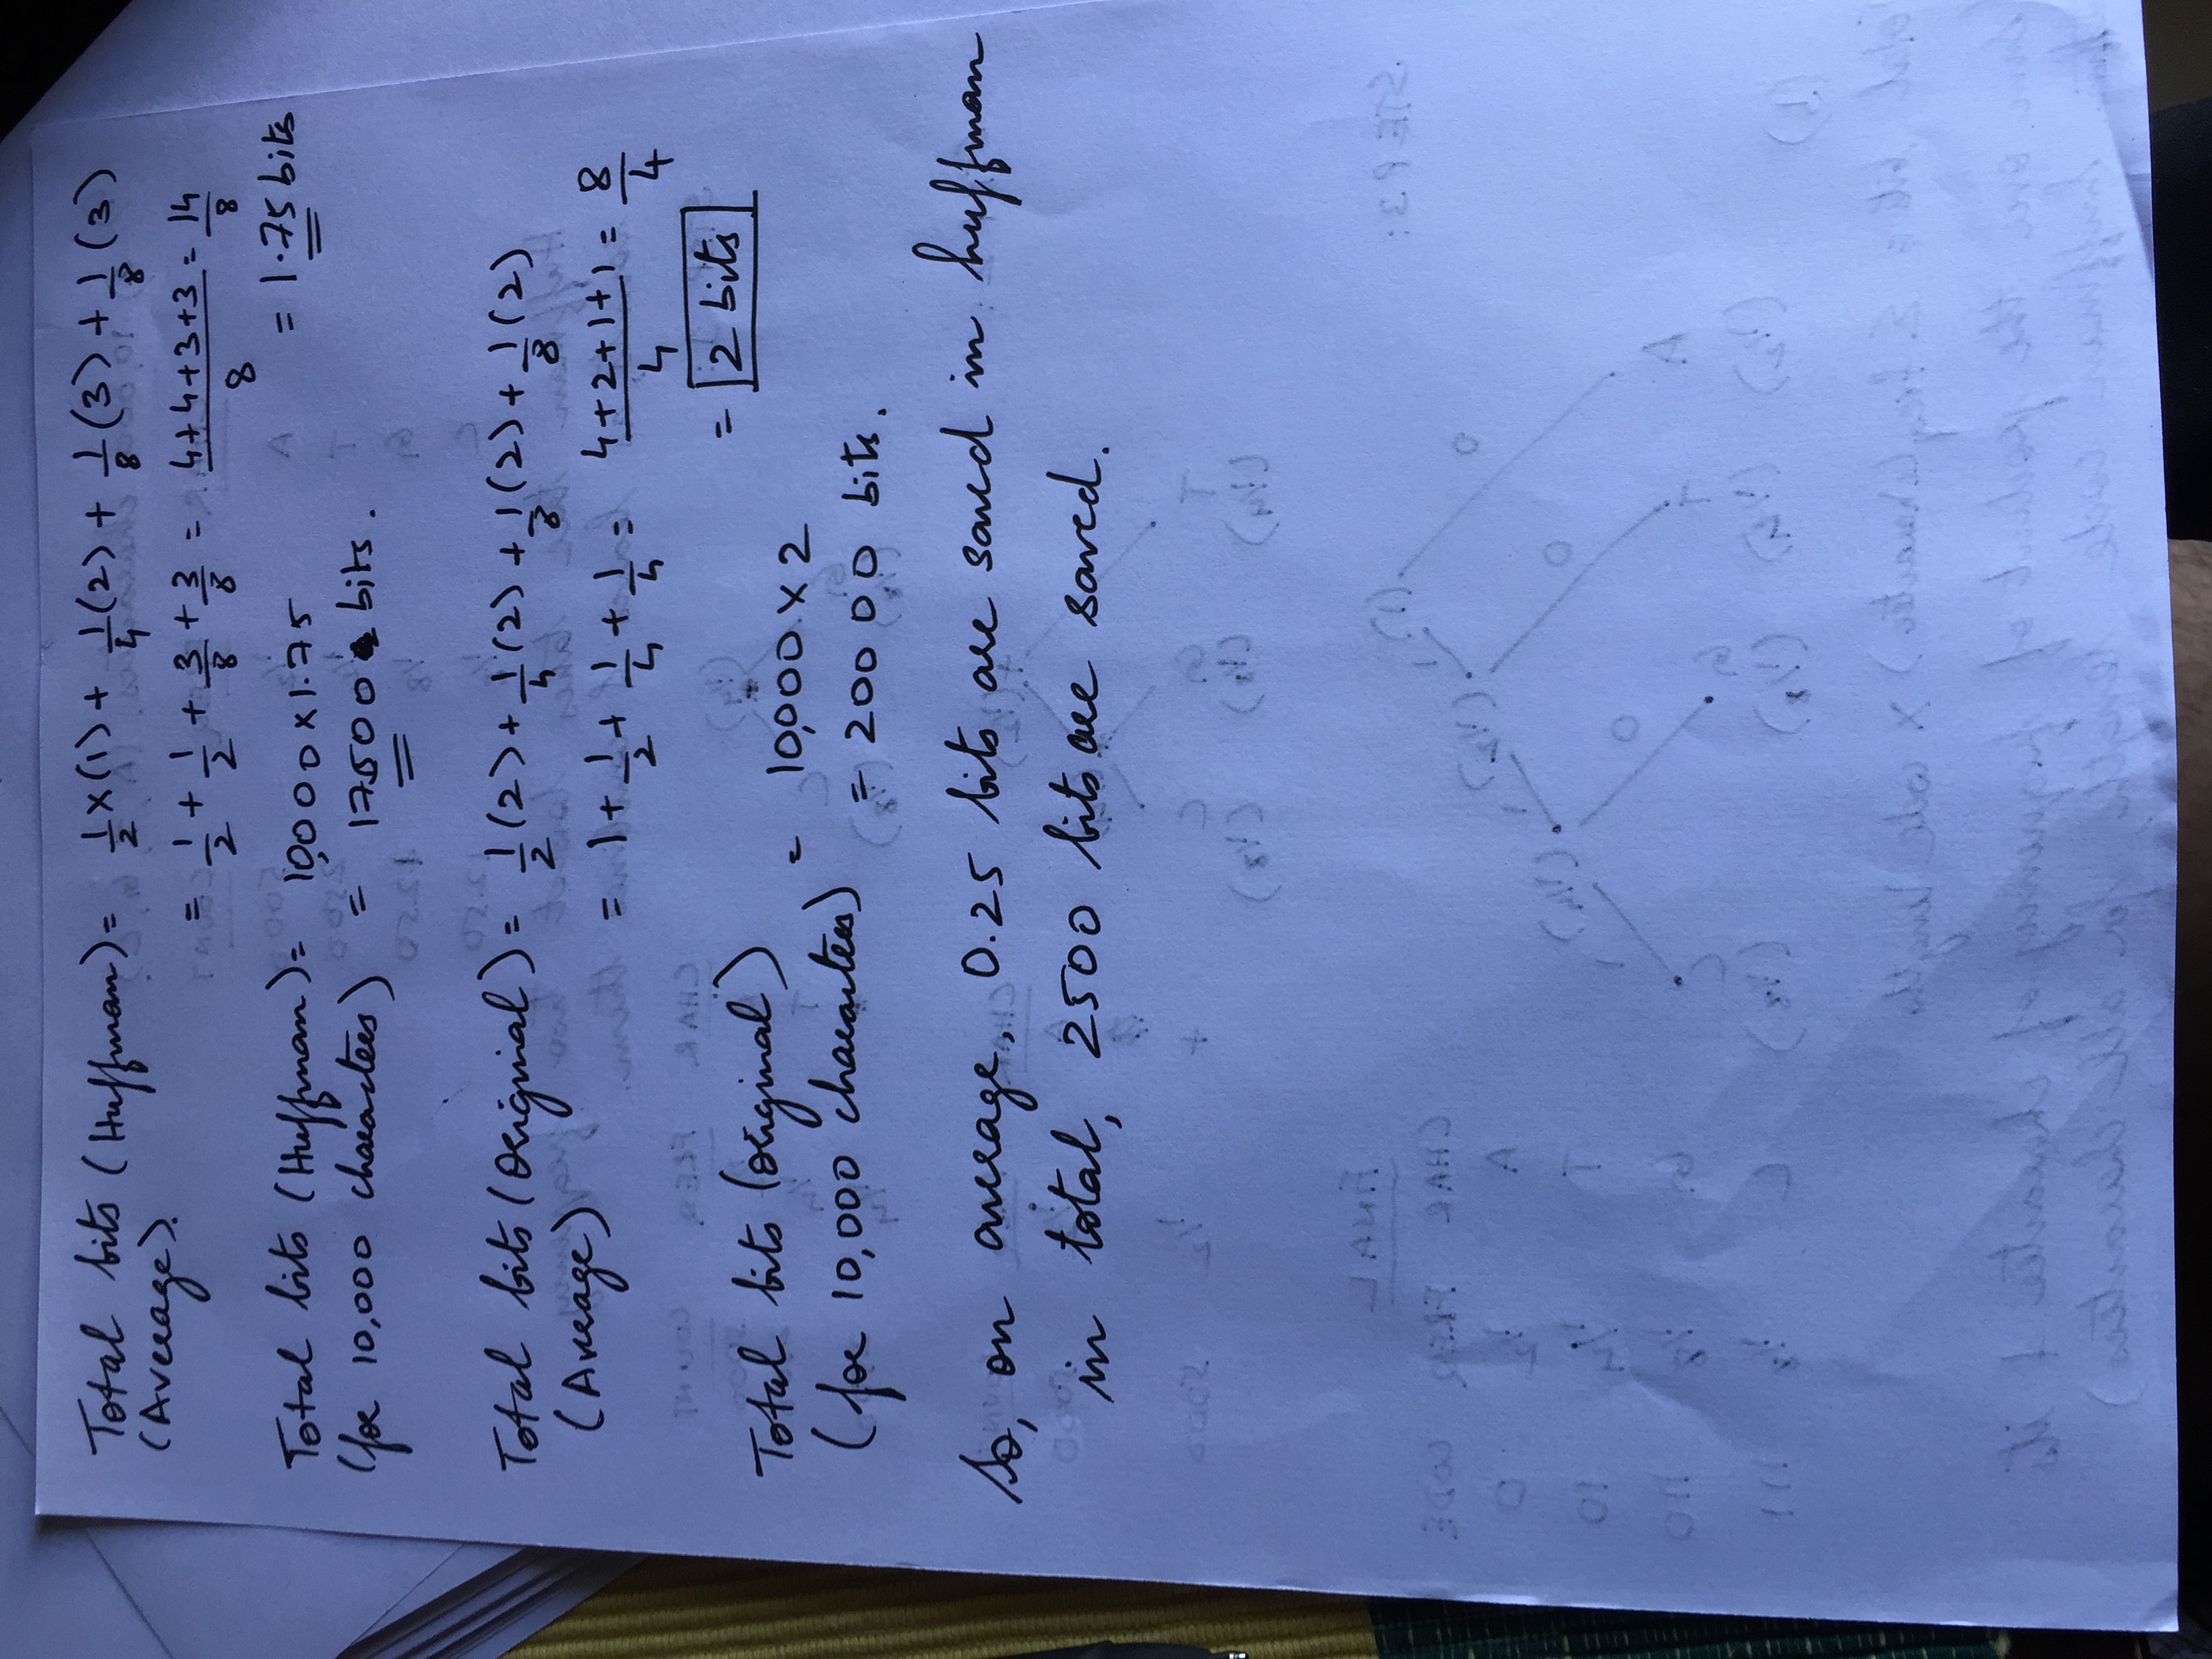 Total bits (Huffman) = 1/2 x (1) + 1/4 (2) + 1/8 (3) + 1/8 (3)
(Average).
= 1/2 + 1/2 + 3/8 + 3/8 = (4+4+3+3)/8 = 14/8
= 1.75 bits
Total bits (Huffman) = 10,000 x 1.75
(for 10,000 characters) = 17500 bits.
Total bits (Original) = 1/2 (2) + 1/4 (2) + 1/8 (2) + 1/8 (2)
(Average)
= 1 + 1/2 + 1/4 + 1/4 = (4+2+1+1)/4 = 8/4
= 2 bits
Total bits (original)
(for 10,000 characters) = 10,000 x 2
= 20000 bits.
So, on average, 0.25 bits are saved in huffman
in total, 2500 bits are saved.